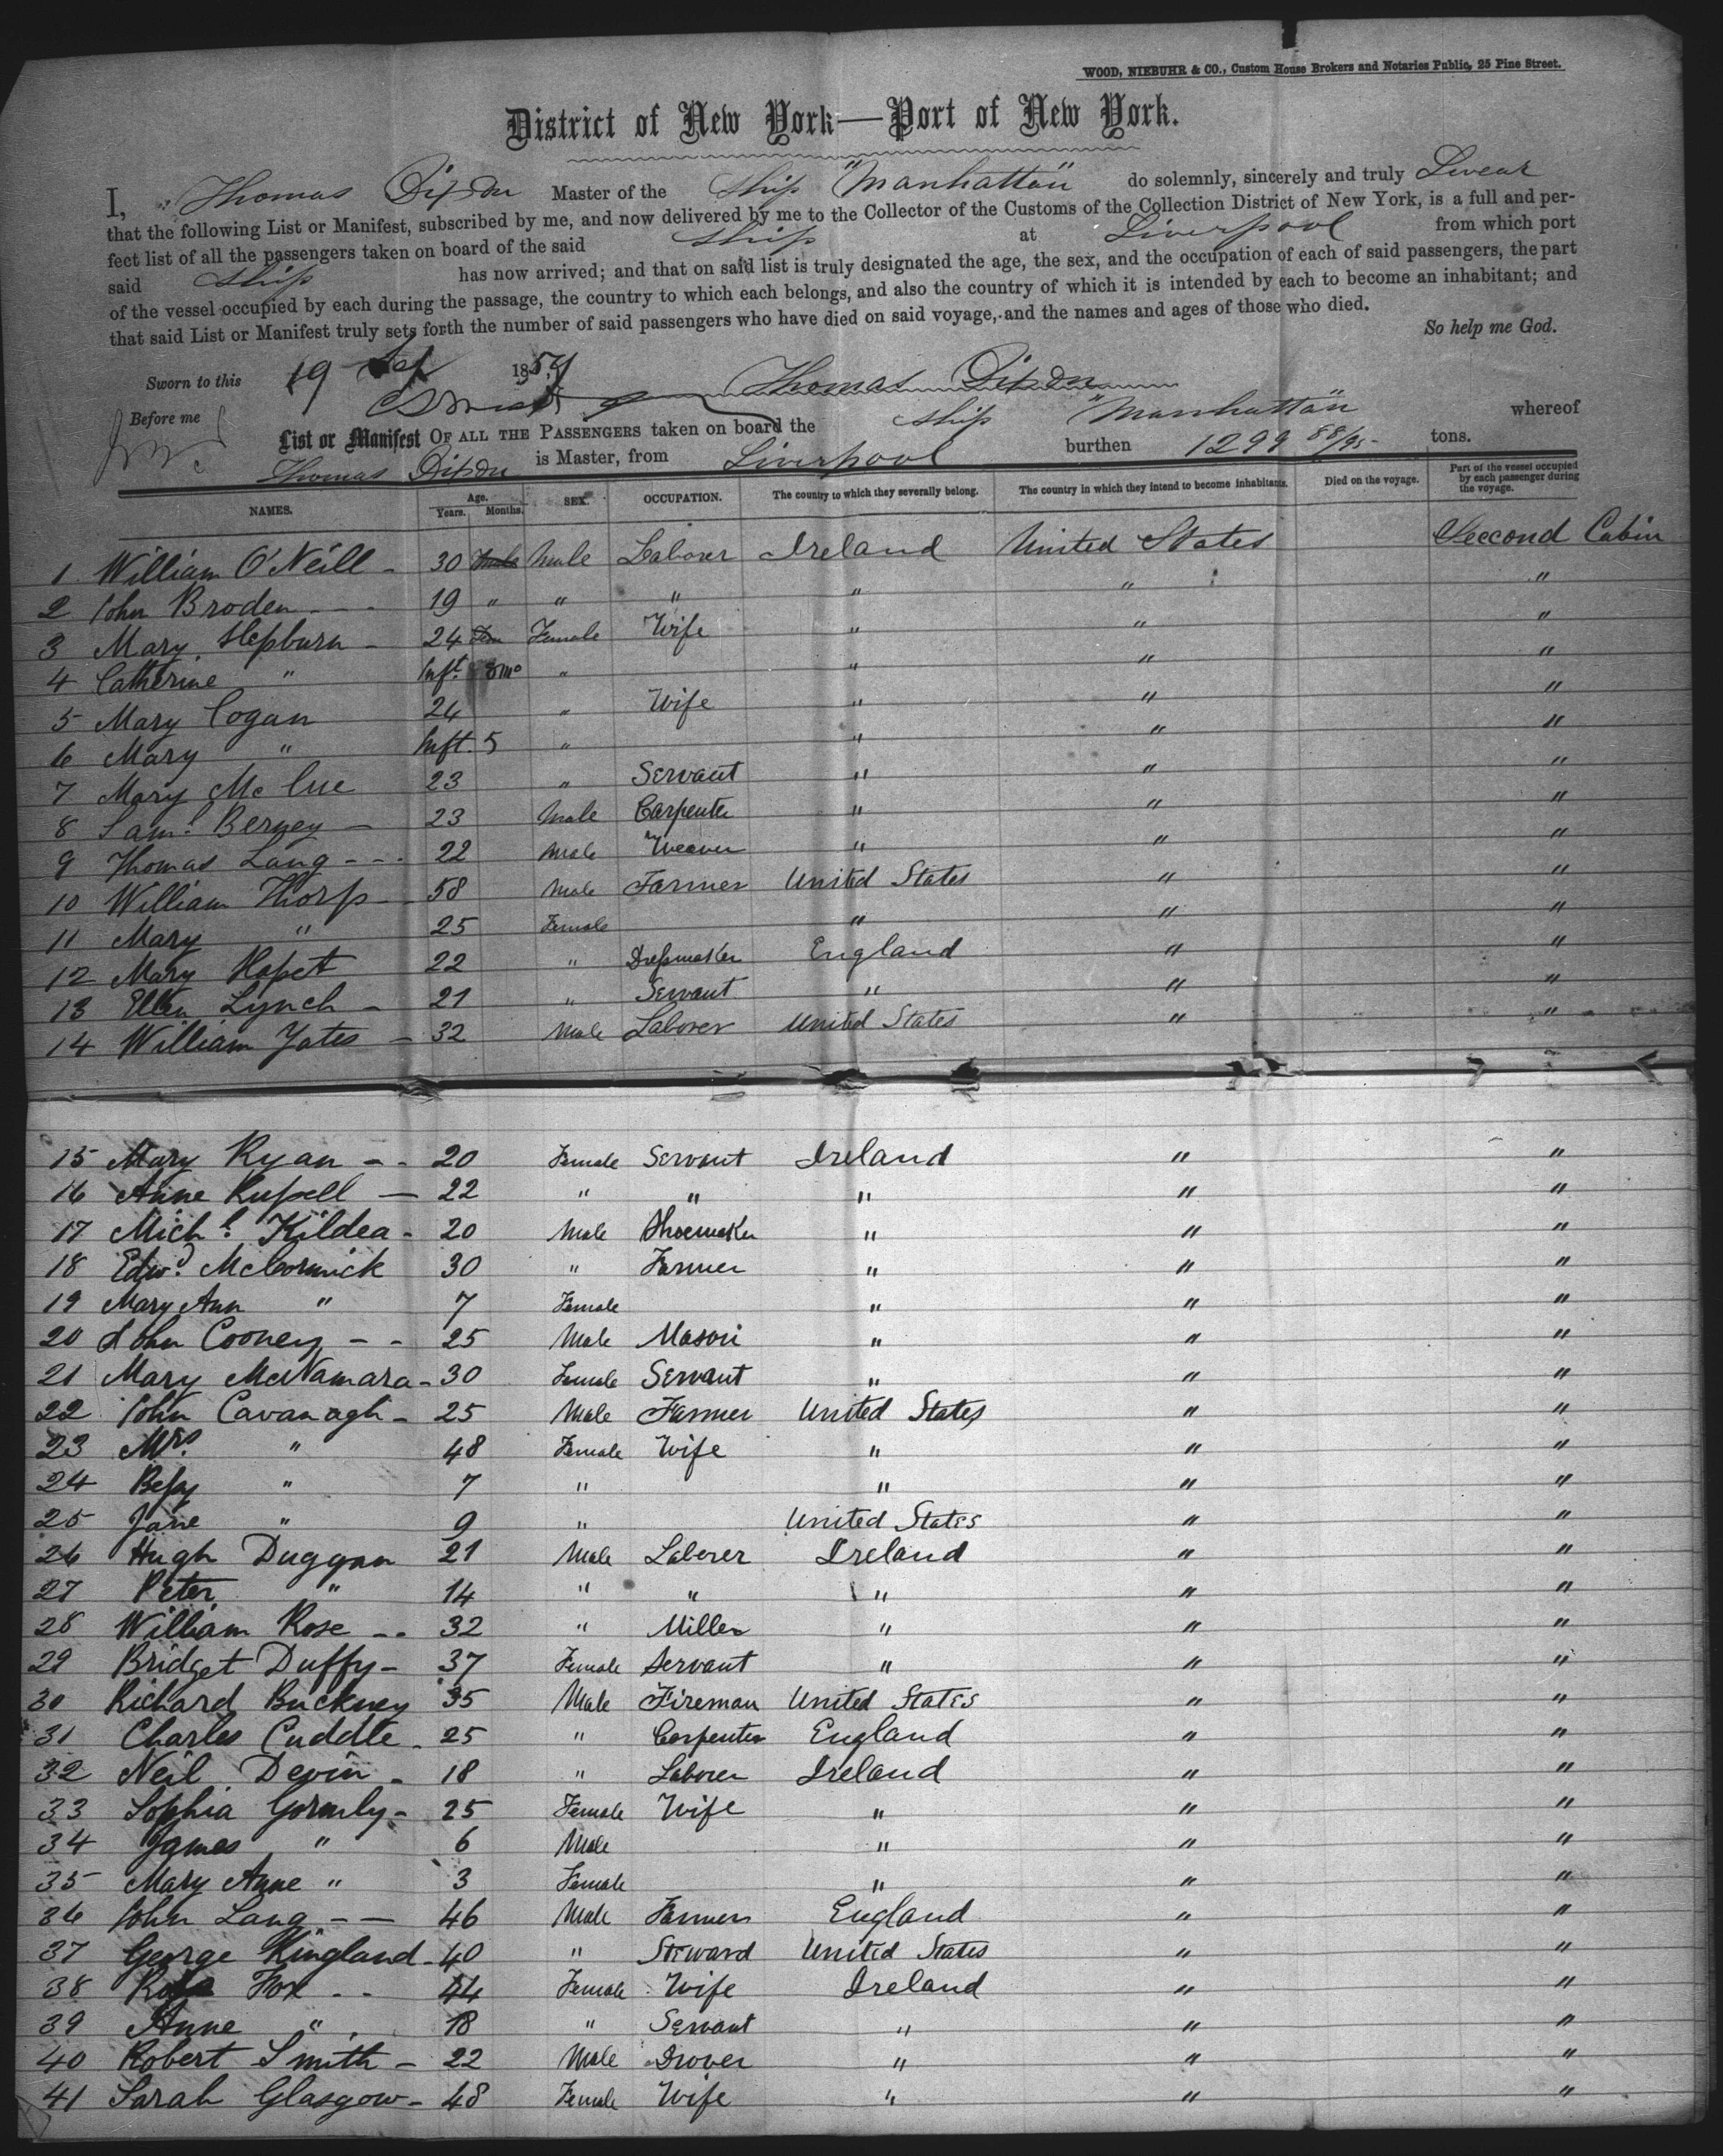 WOOD, NIEBUHR & CO., Custom House Brokers and Notaries Public, 25 Pine Street.
District of New York—Port of New York.
I, Thomas Dixon Master of the Ship "Manhattan" do solemnly, sincerely and truly Swear
that the following List or Manifest, subscribed by me, and now delivered by me to the Collector of the Customs of the Collection District of New York, is a full and per-
fect list of all the passengers taken on board of the said Ship at Liverpool from which port
said Ship has now arrived; and that on said list is truly designated the age, the sex, and the occupation of each of said passengers, the part
of the vessel occupied by each during the passage, the country to which each belongs, and also the country of which it is intended by each to become an inhabitant; and
that said List or Manifest truly sets forth the number of said passengers who have died on said voyage, and the names and ages of those who died.
So help me God.
Sworn to this 19 Sep 1857 Thomas Dixon
Before me
List or Manifest OF ALL THE PASSENGERS taken on board the Ship "Manhattan" whereof
Thomas Dixon is Master, from Liverpool burthen 1299 88/95 tons.
NAMES. Age. Years. Months. SEX. OCCUPATION. The country to which they severally belong. The country in which they intend to become inhabitants. Died on the voyage. Part of the vessel occupied by each passenger during the voyage.
1 William O'Neill - 30 Male Male Laborer Ireland United States Seccond Cabin
2 John Broden - - 19 " " " " " "
3 Mary Hepburn - 24 Female Wife " " "
4 Catherine " Inft. 8 mo " " " "
5 Mary Cogan 24 " Wife " " "
6 Mary " Inft. 5 " " " "
7 Mary McCue 23 " Servant " " "
8 Saml. Berney - 23 Male Carpenter " " "
9 Thomas Lang - - - 22 Male Weaver " " "
10 William Thorp - 58 Male Farmer United States " "
11 Mary " 25 Female " " "
12 Mary 22 " Dressmaker England " "
13 Ellen Lynch - 21 " Servant " " "
14 William Yates - 32 Male Laborer United States " "
15 Mary Ryan - - 20 Female Servant Ireland " "
16 Anne Russell - 22 " " " " "
17 Michl. Kildea - 20 Male Shoemaker " " "
18 Edwd. McCormick 30 " Farmer " " "
19 Mary Ann " 7 Female " " "
20 John Cooney - - 25 Male Mason " " "
21 Mary McNamara - 30 Female Servant " " "
22 John Cavanagh - 25 Male Farmer United States " "
23 Mrs. " 48 Female Wife " " "
24 Bessy " 7 " " " "
25 Jane " 9 " United States " "
26 Hugh Duggan 21 Male Laborer Ireland " "
27 Peter " 14 " " " " "
28 William Rose - - 32 " Miller " " "
29 Bridget Duffy - 37 Female Servant " " "
30 Richard Buckney 35 Male Fireman United States " "
31 Charles Cuddle - 25 " Carpenter England " "
32 Neil Devin - 18 " Laborer Ireland " "
33 Sophia Gormly - 25 Female Wife " " "
34 James " 6 Male " " "
35 Mary Anne " 3 Female " " "
36 John Lang - - 46 Male Farmer England " "
37 George Kingland - 40 " Steward United States " "
38 Fox - - 44 Female Wife Ireland " "
39 Anne " 18 " Servant " " "
40 Robert Smith - 22 Male Drover " " "
41 Sarah Glasgow - 48 Female Wife " " "